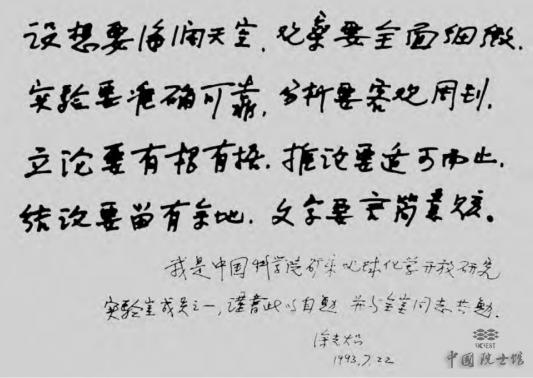 设想要海阔天空,观察要全面细微.
实验要准确可靠,分析要客观周到.
立论要有根有据.推论要适可而止.
结论要留有余地.文字要言简意赅。
我是中国科学院矿床地球化学开放研究
实验室成员之一,谨书此以自勉 并与全室同志共勉.
涂光炽
1993.7.22
中国院士馆